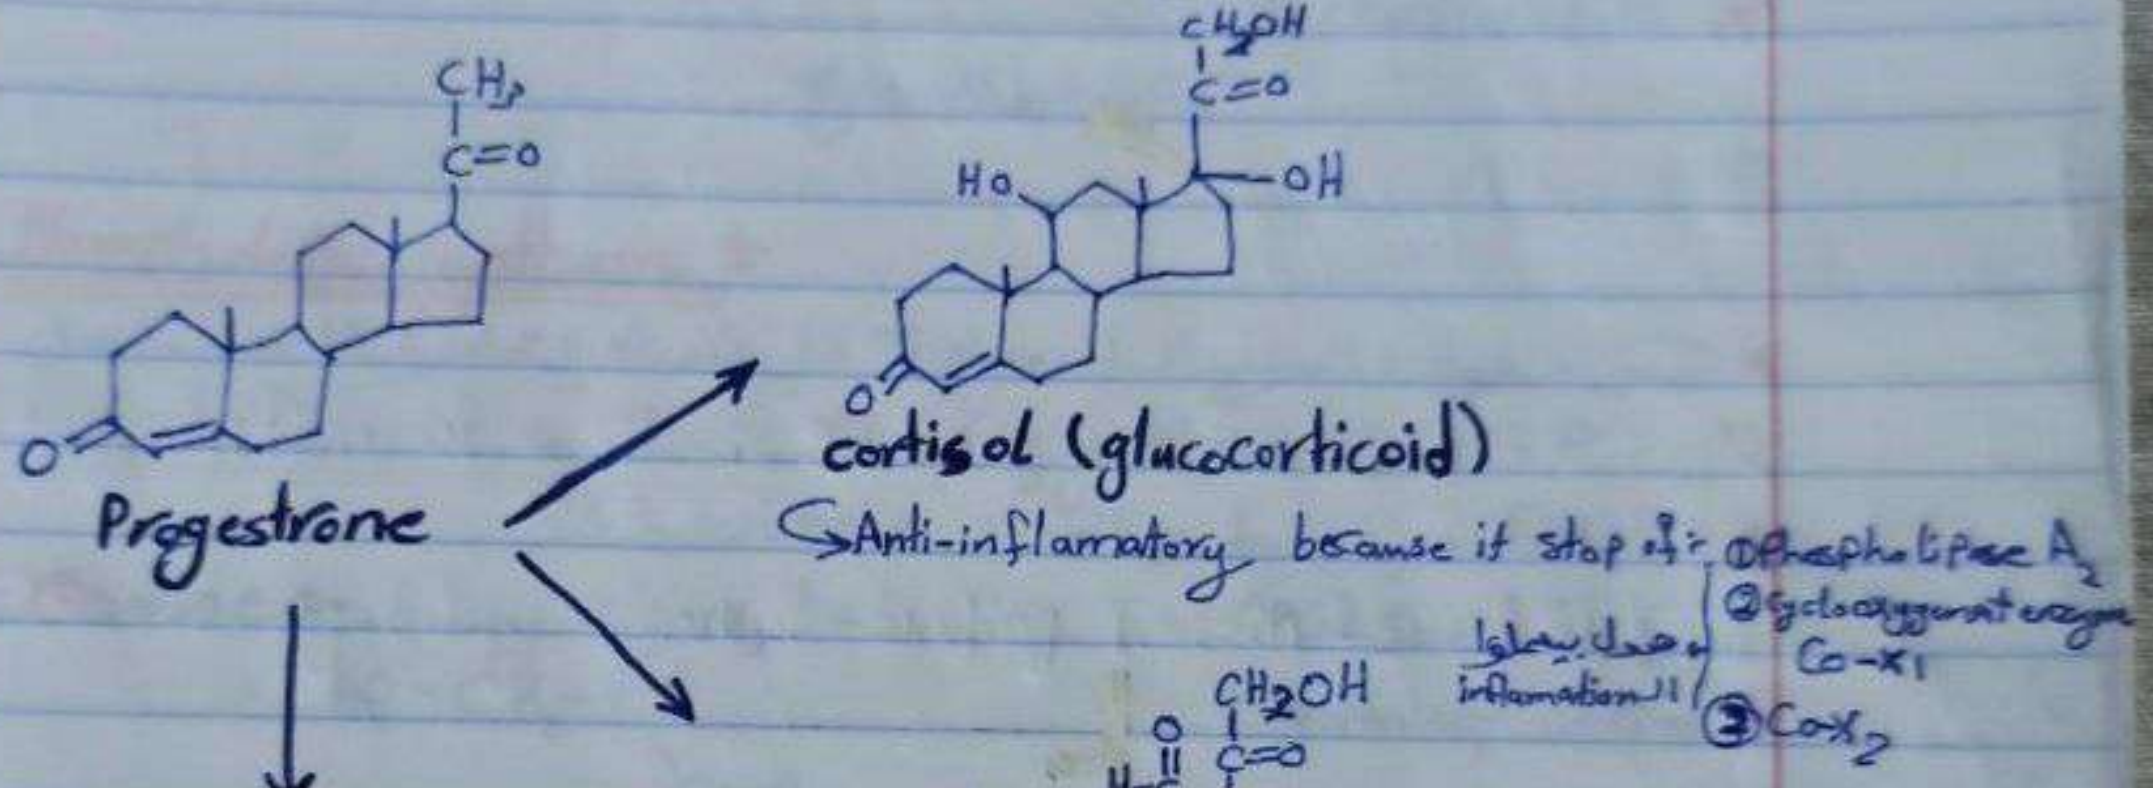 CH₃
C=O
O
Progestrone
CH₂OH
C=O
HO
OH
O
cortisol (glucocorticoid)
Anti-inflamatory because it stop of :- ① Phospholipase A₂
② Cyclooxygenat enzyme
Co-x1
③ Co-x₂
هدول بيعملوا
inflamation الـ
CH₂OH
O
C=O
H-C